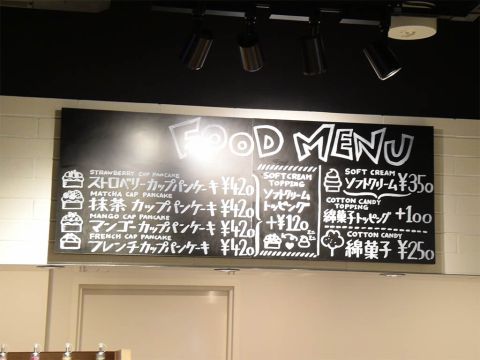 FOOD MENU
STRAWBERRY CUP PANCAKE
ストロベリーカップパンケーキ ¥420
MATCHA CUP PANCAKE
抹茶カップパンケーキ ¥420
MANGO CUP PANCAKE
マンゴーカップパンケーキ ¥420
FRENCH CUP PANCAKE
フレンチカップパンケーキ ¥420
SOFTCREAM
TOPPING
ソフトクリーム
トッピング
+¥120
SOFT CREAM
ソフトクリーム ¥350
COTTON CANDY
TOPPING
綿菓子トッピング +100
COTTON CANDY
綿菓子 ¥250